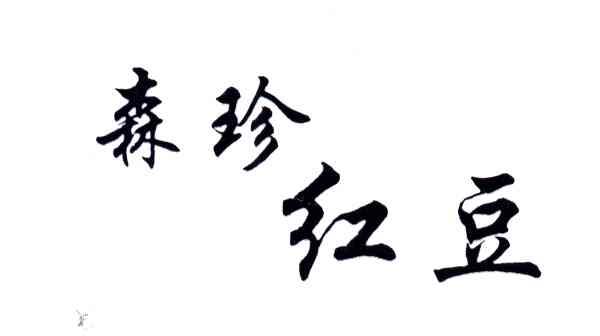 森珍
红豆